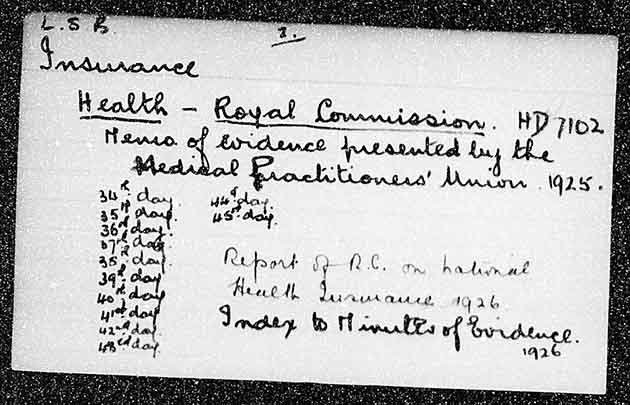 L.S.B.
2.
Insurance
Health - Royal Commission. HD 7102
Memo. of Evidence presented by the
Medical Practitioners' Union. 1925.
34th day. 44th day.
35th day. 45th day.
36th day.
37th day.
38th day.
39th day
40th day
41st day
42nd day.
43rd day.
Report of R.C. on National
Health Insurance 1926.
Index to Minutes of Evidence.
1926